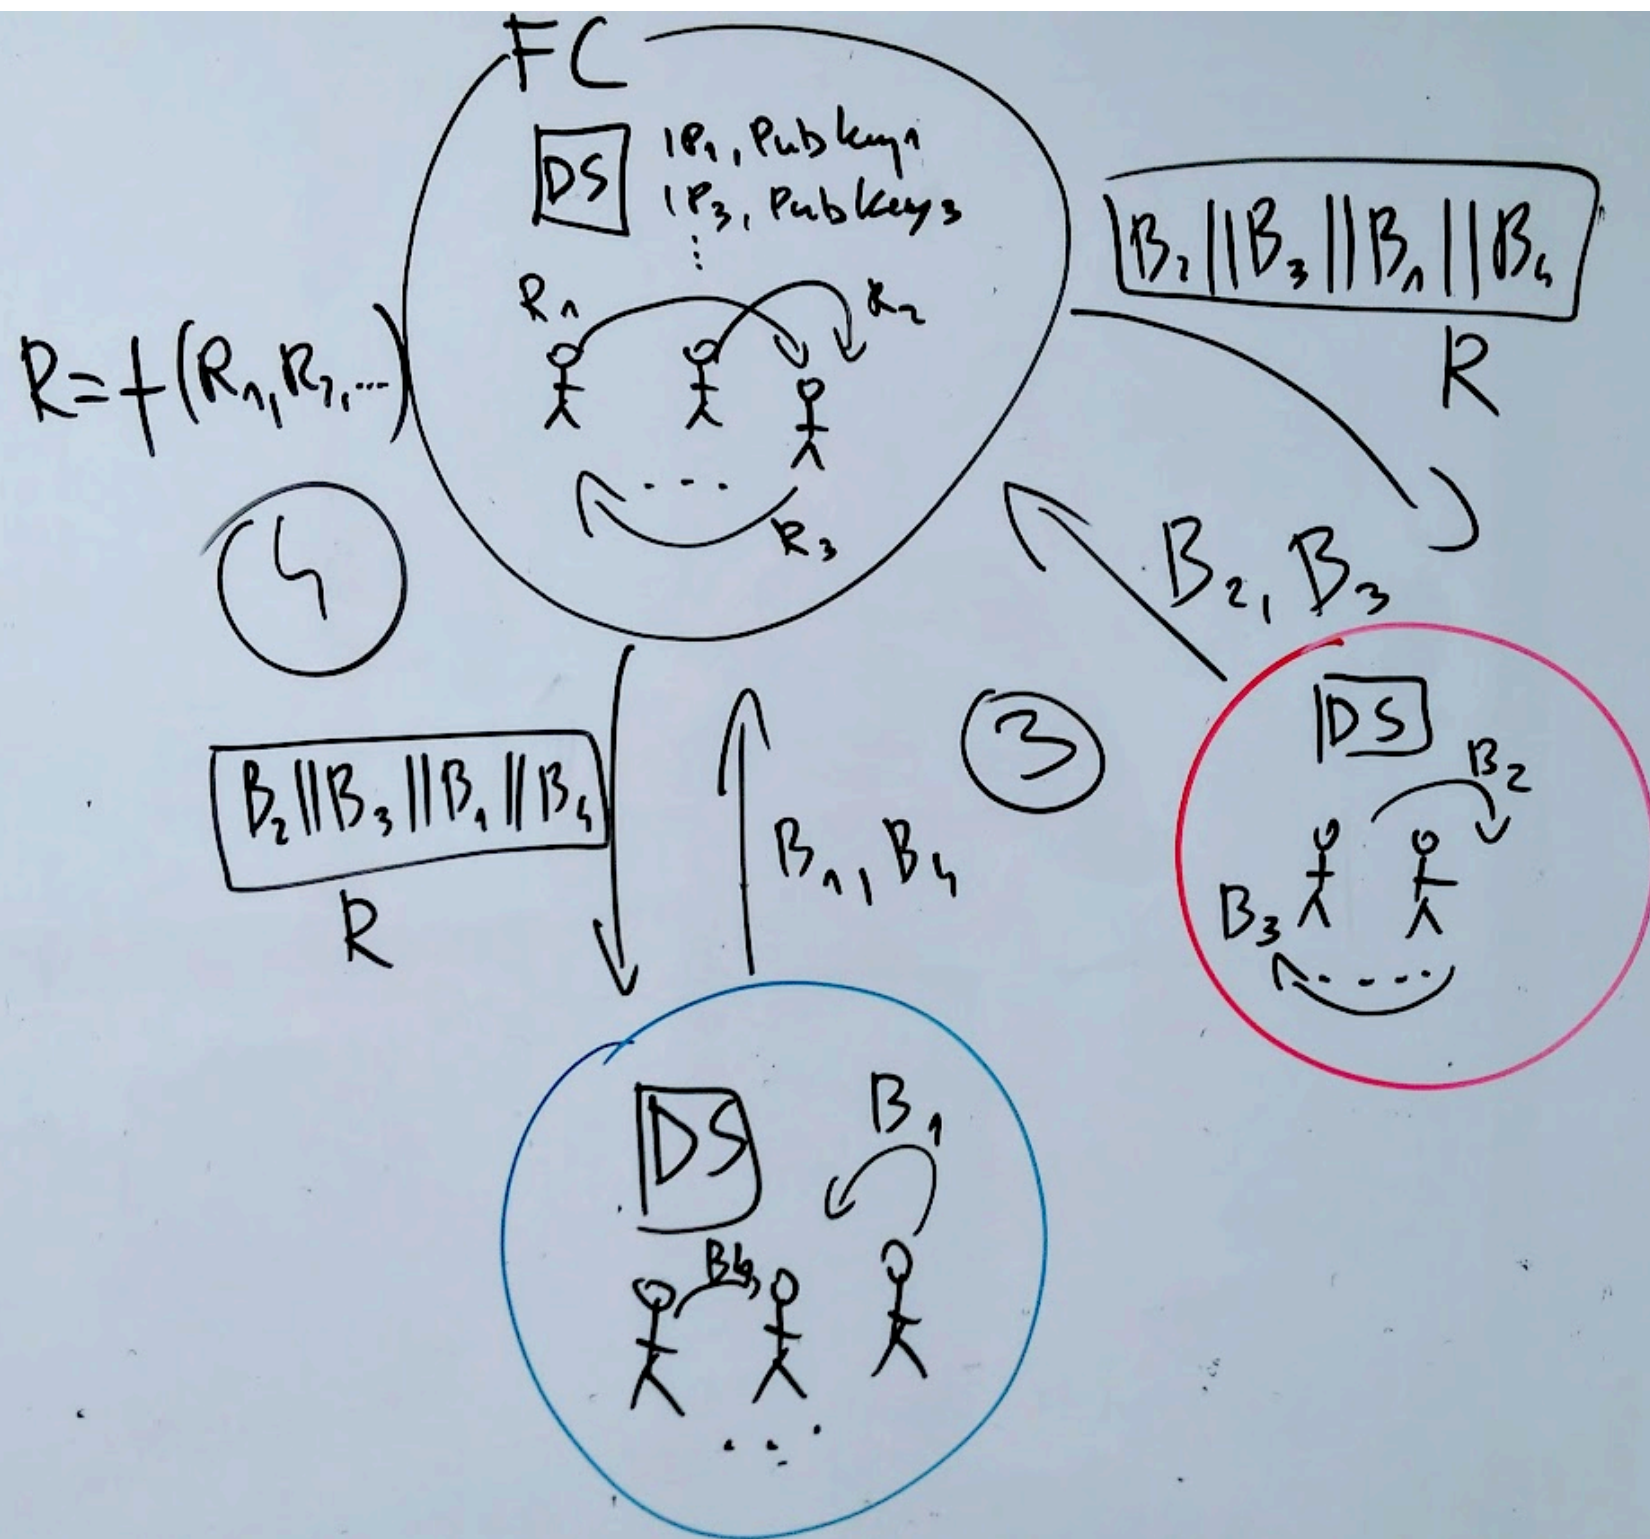 FC
DS
IP₁, Pubkey₁
IP₃, Pubkey₃
⋮
R₁
R₂
R=f(R₁,R₂,...)
...
R₃
B₂||B₃||B₁||B₄
R
4
B₂, B₃
3
B₂||B₃||B₁||B₄
R
B₁, B₄
DS
B₂
B₃
...
DS
B₁
B₄
...